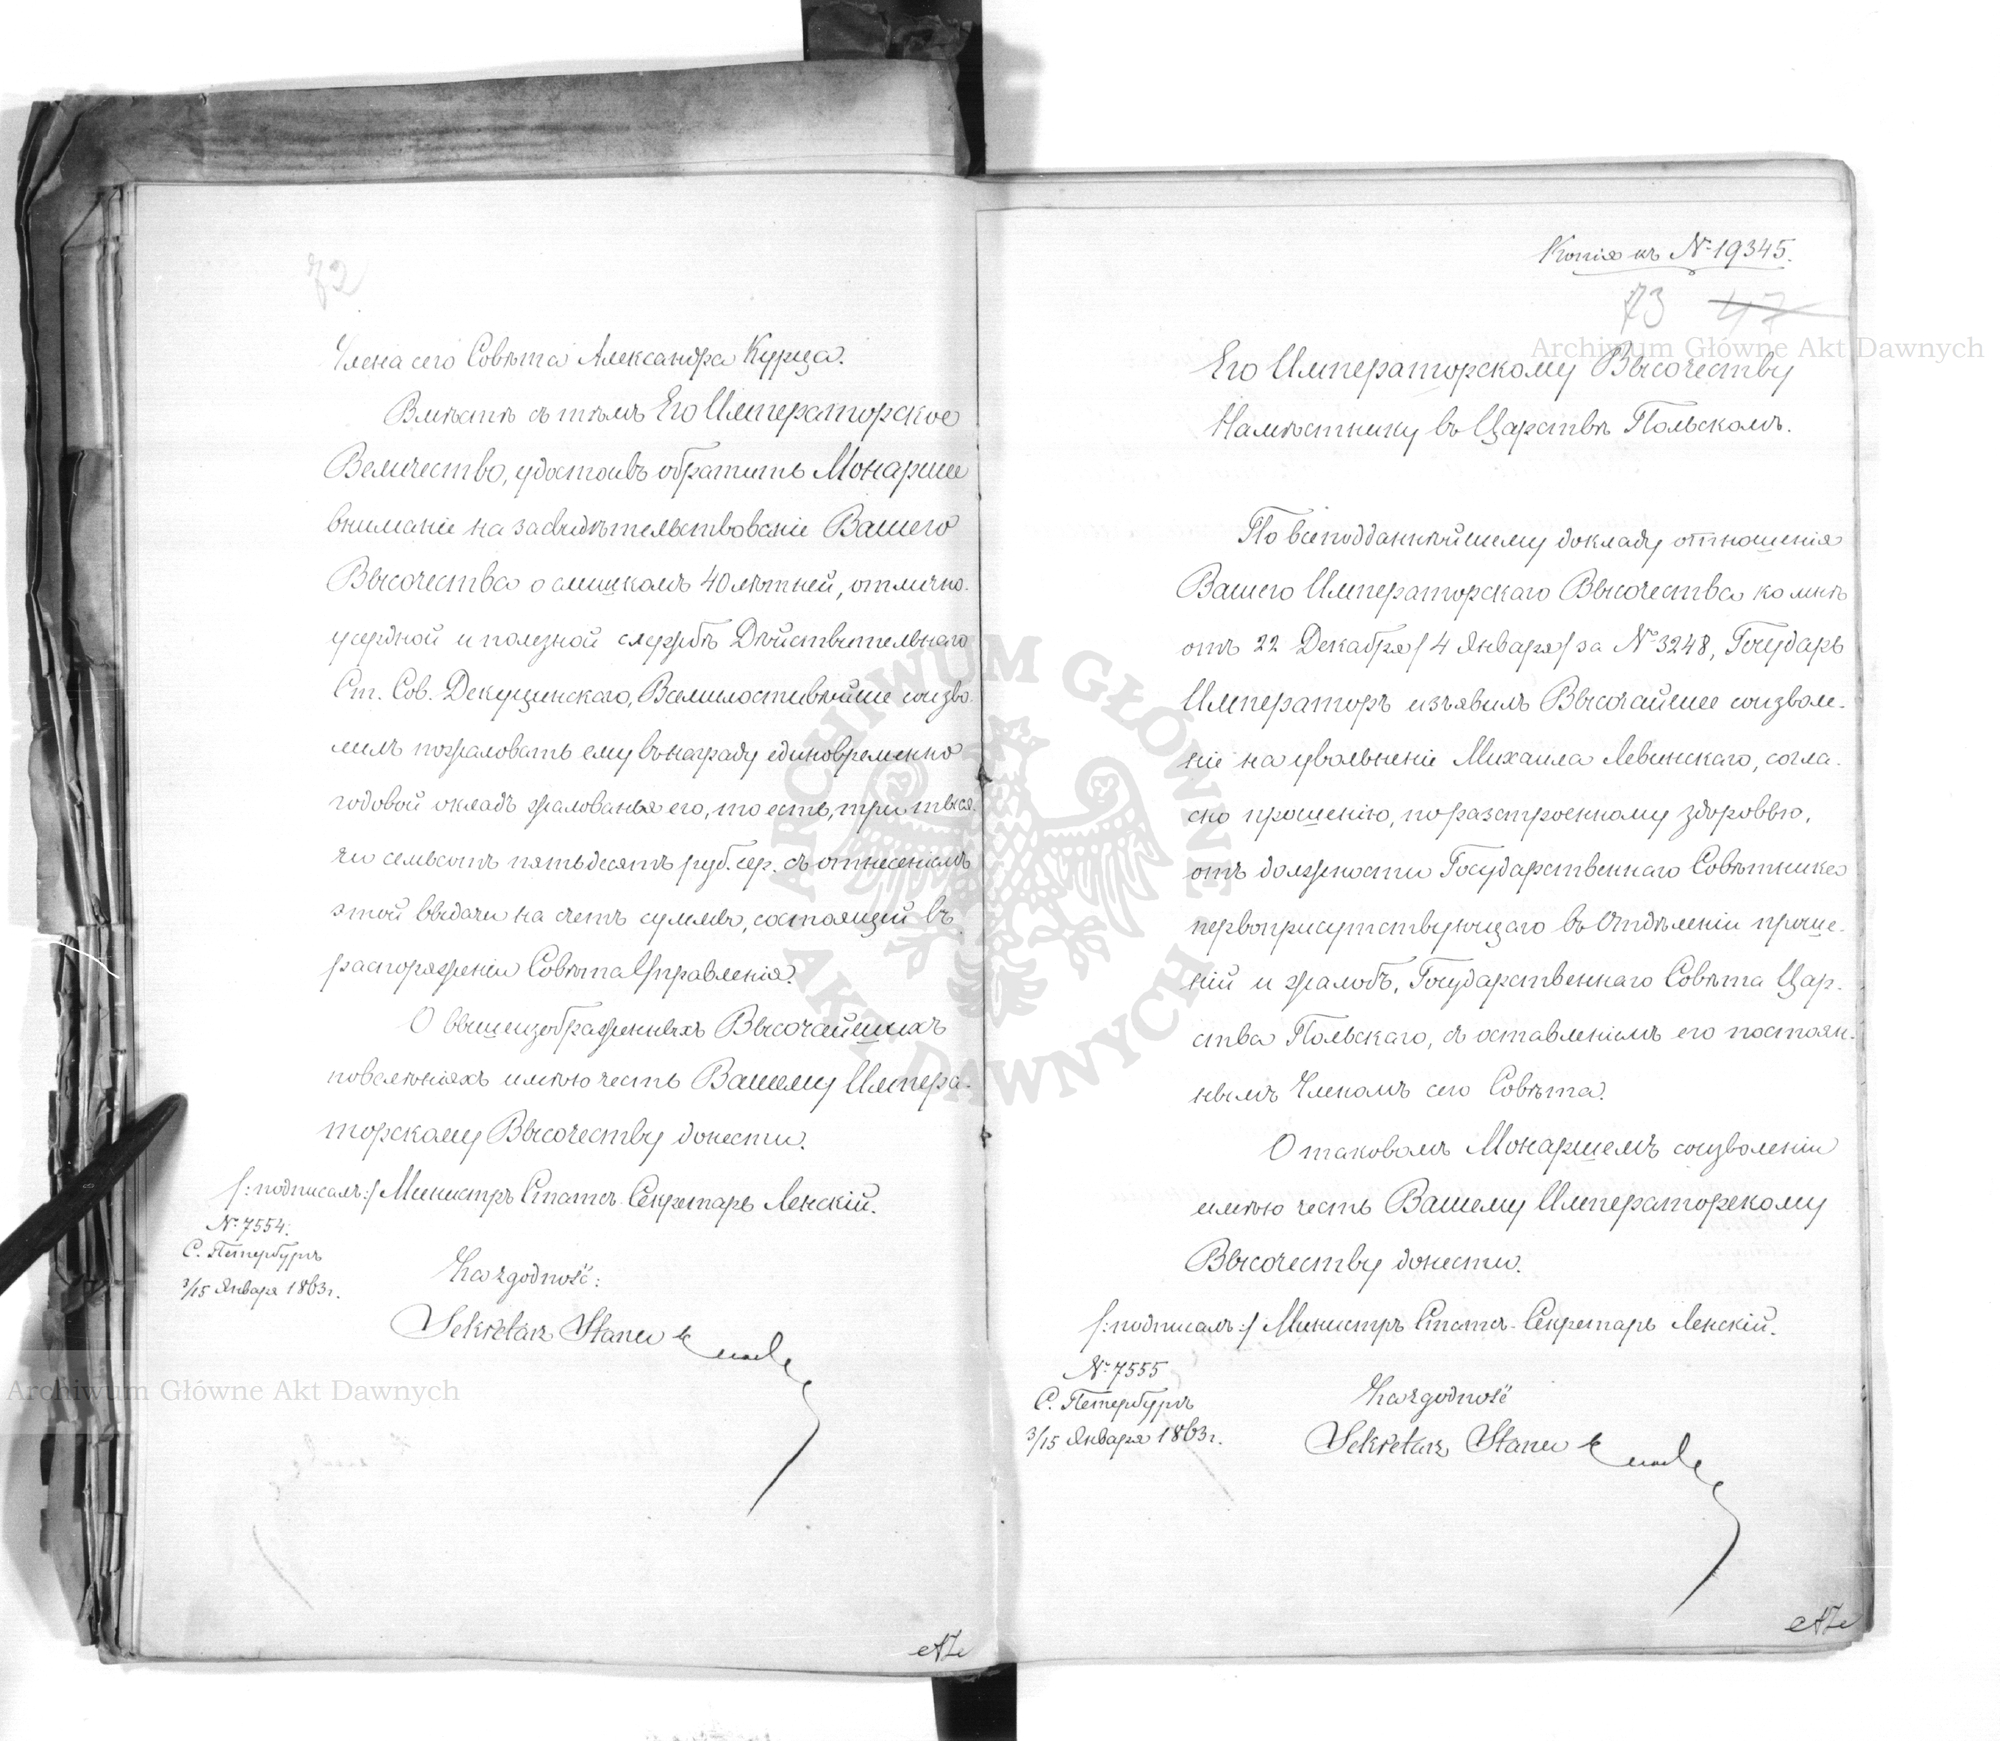 72
Члена сего Совѣта Александра Курца.
Вмѣстѣ съ тѣмъ Его Императорское
Величество, удостоивъ обратить Монаршее
вниманіе на засвидѣтельствованіе Вашего
Высочества о слишкомъ 40 лѣтней, отлично-
усердной и полезной службѣ Дѣйствительнаго
Ст. Сов. Декуцинскаго, Всемилостивѣйше соизво-
лилъ пожаловать ему въ награду единовременно
годовой окладъ жалованья его, то есть, три тыся-
чи семьсотъ пятьдесятъ руб. сер. съ отнесеніемъ
этой выдачи на счетъ суммъ, состоящей въ
распоряженіи Совѣта Управленія.
О вышеизображенныхъ Высочайшихъ
повелѣніяхъ имѣю честь Вашему Импера-
торскому Высочеству донести.
/:подписалъ:/ Министръ Статсъ-Секретарь Ленскій.
№ 7554.
С. Петербургъ
3/15 Января 1863 г.
Za zgodność:
Sekretarz Stanu
Копія къ № 19345.
73 47
Его Императорскому Высочеству
Намѣстнику въ Царствѣ Польскомъ.
По всеподданнѣйшему докладу отношенія
Вашего Императорскаго Высочества ко мнѣ
отъ 22 Декабря /4 Января/ за № 3248, Государь
Императоръ изъявилъ Высочайшее соизволе-
ніе на увольненіе Михаила Левинскаго, согла-
сно прошенію, по разстроенному здоровью,
отъ должности Государственнаго Совѣтника
первоприсутствующаго въ Отдѣленіи проше-
ній и жалобъ, Государственнаго Совѣта Цар-
ства Польскаго, съ оставленіемъ его постоян-
нымъ Членомъ сего Совѣта.
О таковомъ Монаршемъ соизволеніи
имѣю честь Вашему Императорскому
Высочеству донести.
/:подписалъ:/ Министръ Статсъ-Секретарь Ленскій.
№ 7555
С. Петербургъ
3/15 Января 1863 г.
Za zgodność
Sekretarz Stanu
Archiwum Główne Akt Dawnych
Archiwum Główne Akt Dawnych
ARCHIWUM GŁÓWNE AKT DAWNYCH